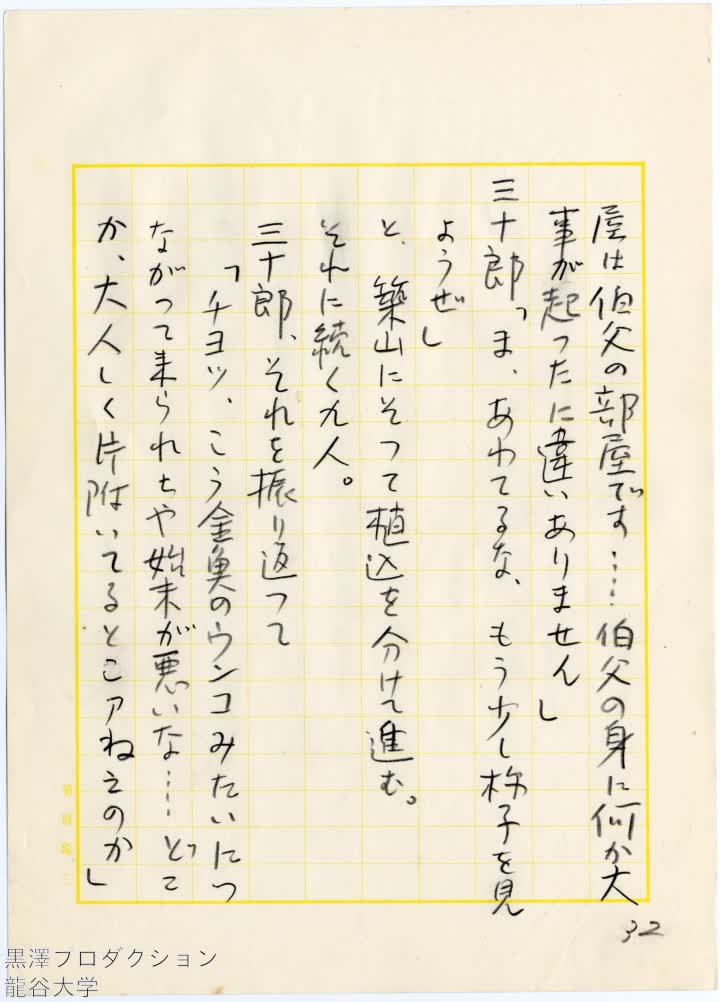 屋は伯父の部屋です……伯父の身に何か大
事が起つたに違いありません」
三十郎「ま、あわてるな、もう少し様子を見
ようぜ」
と、築山にそつて植込を分けて進む。
それに続く九人。
三十郎、それを振り返つて
「チヨツ、こう金魚のウンコみたいにつ
ながつて来られちや始末が悪いな……どつて
か、大人しく片附いてるとこアねえのか」
32
黒澤プロダクション
龍谷大学